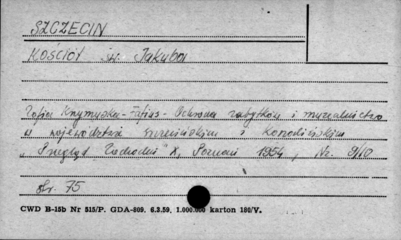 SZCZECIN
KOŚCIÓŁ św. Jakuba
Zofia Krzymuska-Fafius - Ochrona zabytków i muzealnictwo
w województwie szczecińskim i koszalińskim
"Przegląd Zachodni" X, Poznań 1954, Nr. 9/10
str. 75
CWD B-15b Nr 515/P. GDA-809. 6.3.59. 1.000.000 karton 180/V.